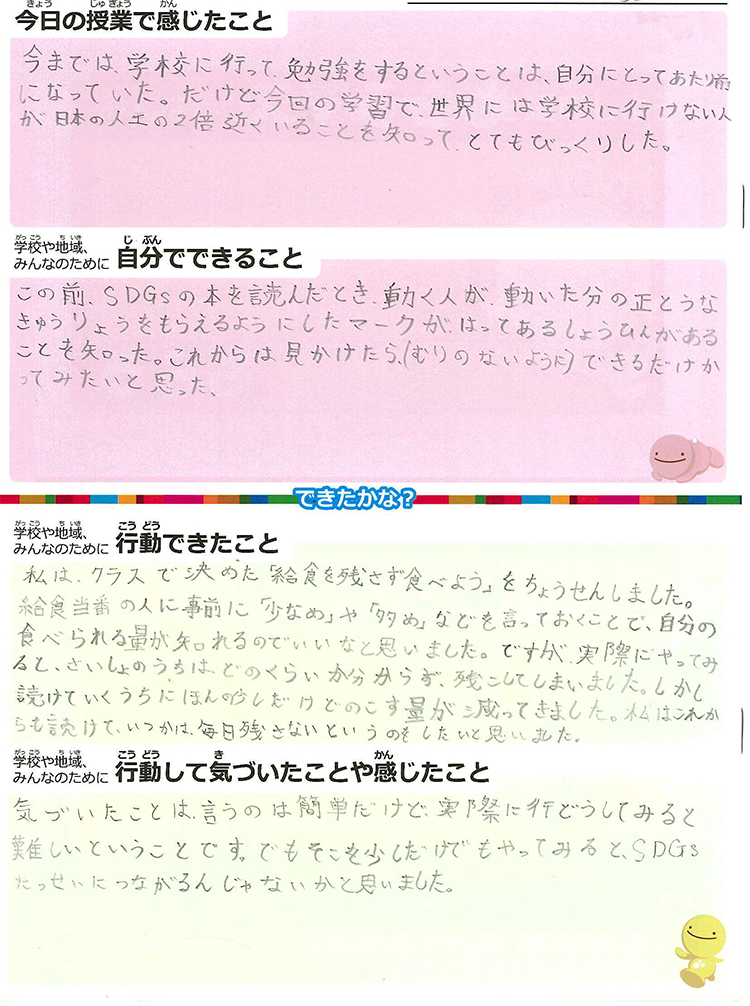 今日の授業で感じたこと
今までは、学校に行って、勉強をするということは、自分にとってあたり前
になっていた。だけど今回の学習で、世界には学校に行けない人
が日本の人工の2倍近くいることを知って、とてもびっくりした。
学校や地域、
みんなのために 自分でできること
この前、SDGsの本を読んだとき、動く人が、動いた分の正とうな
きゅうりょうをもらえるようにしたマークが、はってあるしょうひんがある
ことを知った。これからは見かけたら、(むりのないように)できるだけか
ってみたいと思った、
できたかな?
学校や地域、
みんなのために 行動できたこと
私は、クラスで決めた「給食を残さず食べよう」をちょうせんしました。
給食当番の人に事前に「少なめ」や「多め」などを言っておくことで、自分の
食べられる量が知れるのでいいなと思いました。ですが、実際にやってみ
ると、さいしょのうちは、どのくらいか分からず、残こしてしまいました。しかし
読けていくうちにほんの少しだけどのこす量が減ってきました。私はこれか
らも読けて、いつかは、毎日残さないというのをしたいと思いました。
学校や地域、
みんなのために 行動して気づいたことや感じたこと
気づいたことは、言うのは簡単だけど、実際に行どうしてみると
難しいということです。でもそこを少しだけでもやってみると、SDGs
たっせいにつながるんじゃないかと思いました。